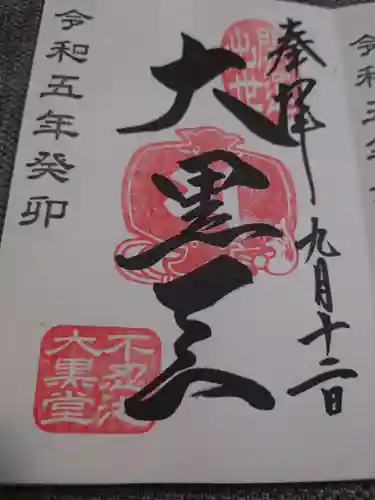 奉拝 九月十二日
出世
大黒天
令和五年癸卯
不忍池
大黒堂
令和五年